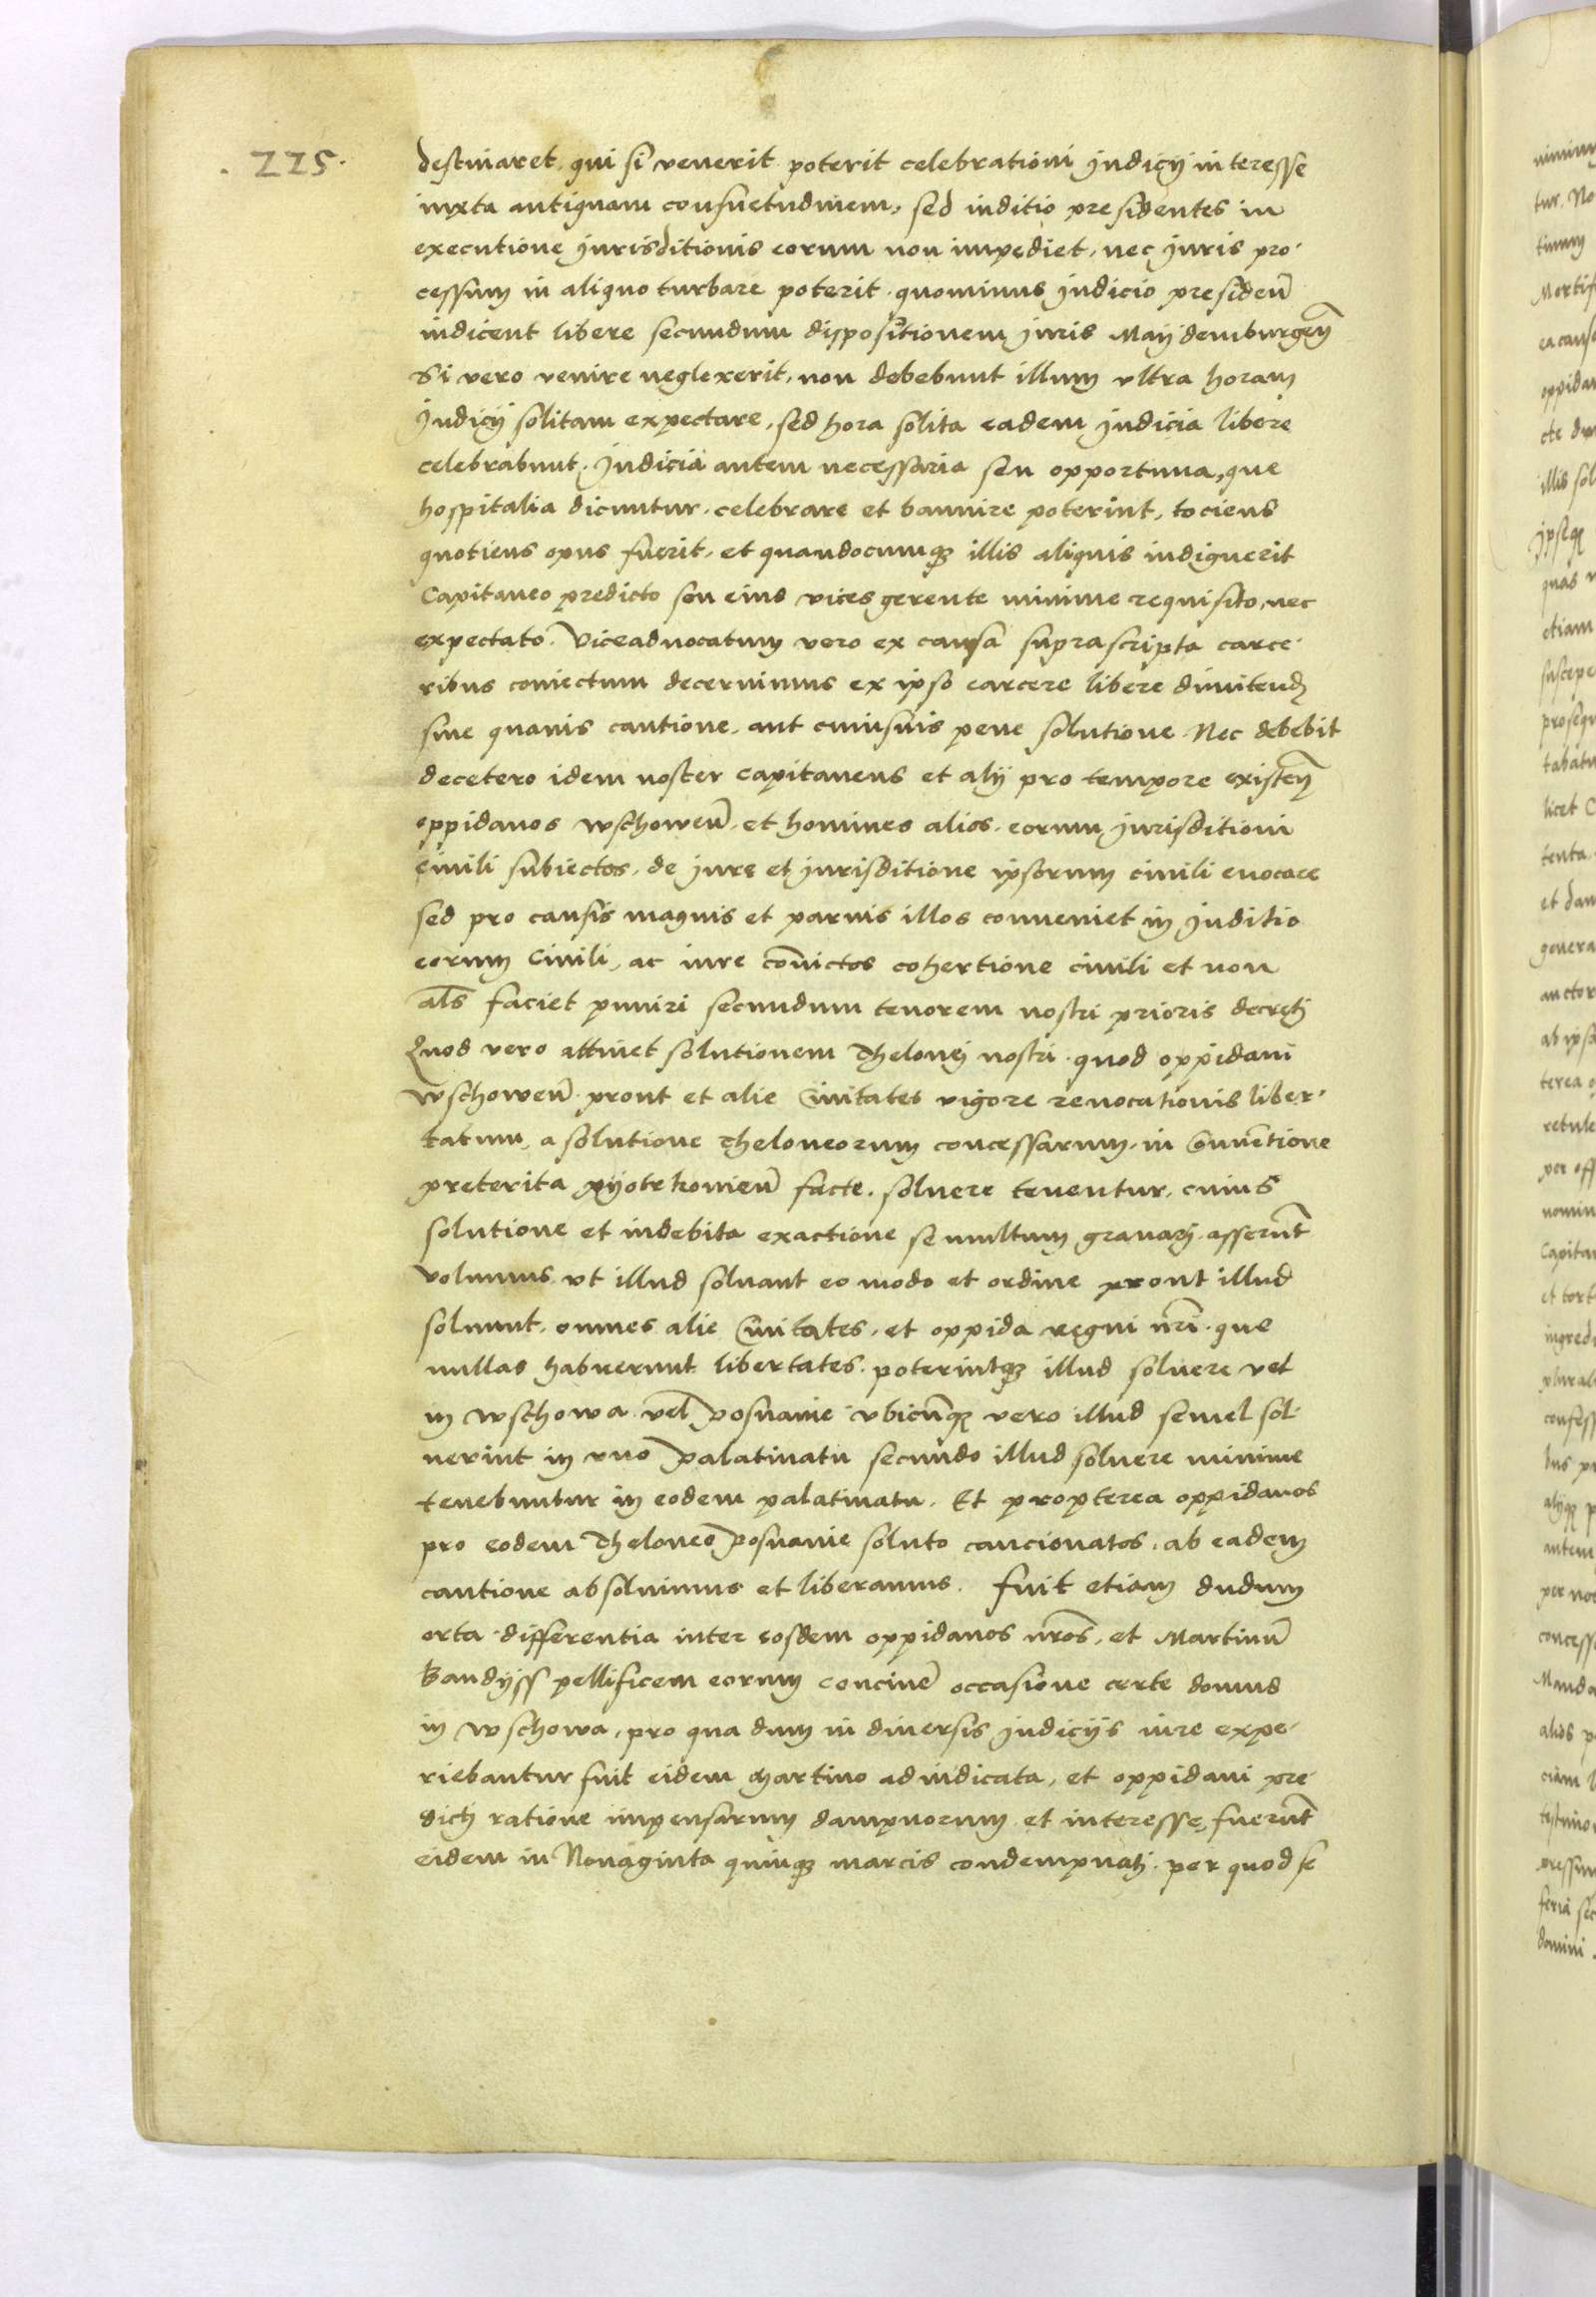 . 225 .
destinaret, qui si venerit poterit celebrationi Judicij interesse
iuxta antiquam consuetudinem, sed iuditio presidentes in
executione Jurisditionis eorum non impediet, nec Juris pro-
cessum in aliquo turbare poterit, quominus Judicio presiden̄
iudicent libere secundum dispositionem Juris Maijdemburgeñ
Si vero venire neglexerit, non debebunt illum vltra horam
Judicij solitam expectare, sed hora solita eadem Judicia libere
celebrabunt. Judicia autem necessaria seu opportuna, que
hospitalia dicuntur, celebrare et bannire poterint, tociens
quotiens opus fuerit, et quandocumqȝ illis aliquis indiguerit
Capitaneo predicto seu eius vices gerente minime requisito, nec
expectato. Viceaduocatum vero ex causa suprascripta carce-
ribus coniectum decernimus ex ipso carcere libere dimitend
sine quauis cautione, aut cuiusuis pene solutione. Nec debebit
decetero idem noster Capitaneus et alij pro tempore existeñ
oppidanos wschowen̄, et homines alios, eorum Jurisditioni
ciuili subiectos, de Jure et Jurisditione ipsorum ciuili euocare
sed pro causis magnis et paruis illos conueniet in Juditio
eorum Ciuili, ac iure cōuictos cohertione ciuili et non
al̄s faciet puniri secundum tenorem nostri prioris decreti
Quod vero attinet solutionem Thelonej nostri, quod oppidani
wschowen̄ prout et alie Ciuitates vigore reuocationis liber-
tatum, a solutione Theloneorum concessarum, in Conuētione
preterita pijotrkouien̄ facte, soluere tenentur, cuius
solutione et indebita exactione se multum grauarj asserūt
volumus vt illud soluant eo modo et ordine prout illud
soluunt, omnes alie Ciuitates, et oppida regni nr̄i, que
nullas habuerunt libertates, poterintqȝ illud soluere vel
in wschowa vel posnanie vbicūqȝ vero illud semel sol-
uerint in vno palatinatu secundo illud soluere minime
tenebuntur in eodem palatinatu. Et propterea oppidanos
pro eodem Theloneo posnanie soluto caucionatos, ab eadem
cautione absoluimus et liberamus. Fuit etiam dudum
orta differentia inter eosdem oppidanos nr̄os, et Martinū
Bandijss pellificem eorum conciuē occasione certe domus
in wschowa, pro qua dum in diuersis Judicijs iure expe-
riebantur fuit eidem Martino adiudicata, et oppidani pre-
dicti ratione impensarum dampnorum et interesse, fuerūt
eidem in Nonaginta quinqȝ marcis condempnati, per quod se